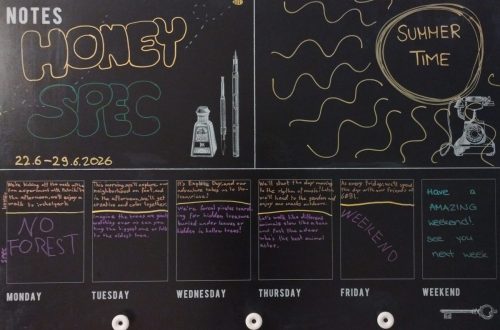 NOTES
HONEY
SPEC
22.6-29.6.2026
SUMMER
TIME
We're kicking off the week with a
fun experiment with
the afternoon, we'll enjoy a
walk to
NO
FOREST
This morning, we'll explore our
neighborhood on foot, and
in the afternoon, we'll get
creative and
Imagine the trees are giants
holding
ting the biggest one or talk
to the oldest tree.
It's English Day, and our
adventure takes us to the
We're forest pirates search-
ing for hidden treasure
buried under leaves or
hidden in hollow trees!
We'll start the day moving
to the rhythm of music! Later,
we'll head to the garden and
enjoy our snacks outdoors.
Let's walk like different
animals slow like a
and fast like a deer
who's the best animal
actor.
As every friday, we'll spend
the day with our friends in
WEEKEND
Have a
AMAZING
weekend!
See you
next week
MONDAY
TUESDAY
WEDNESDAY
THURSDAY
FRIDAY
WEEKEND